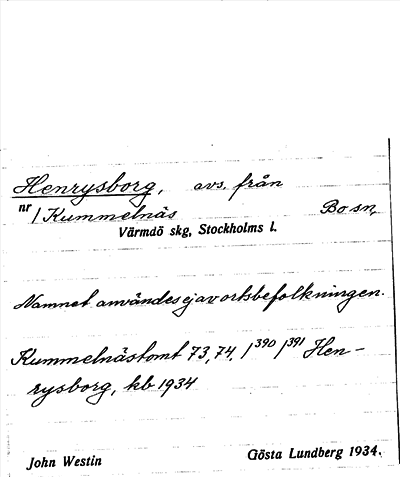 Henrysborg, avs. från
nr 1 Kummelnäs Bo sn,
Värmdö skg, Stockholms l.
Namnet användes ej av ortsbefolkningen.
Kummelnästomt 73, 74, 1390 1391 Hen-
rysborg, kb 1934
John Westin Gösta Lundberg 1934.